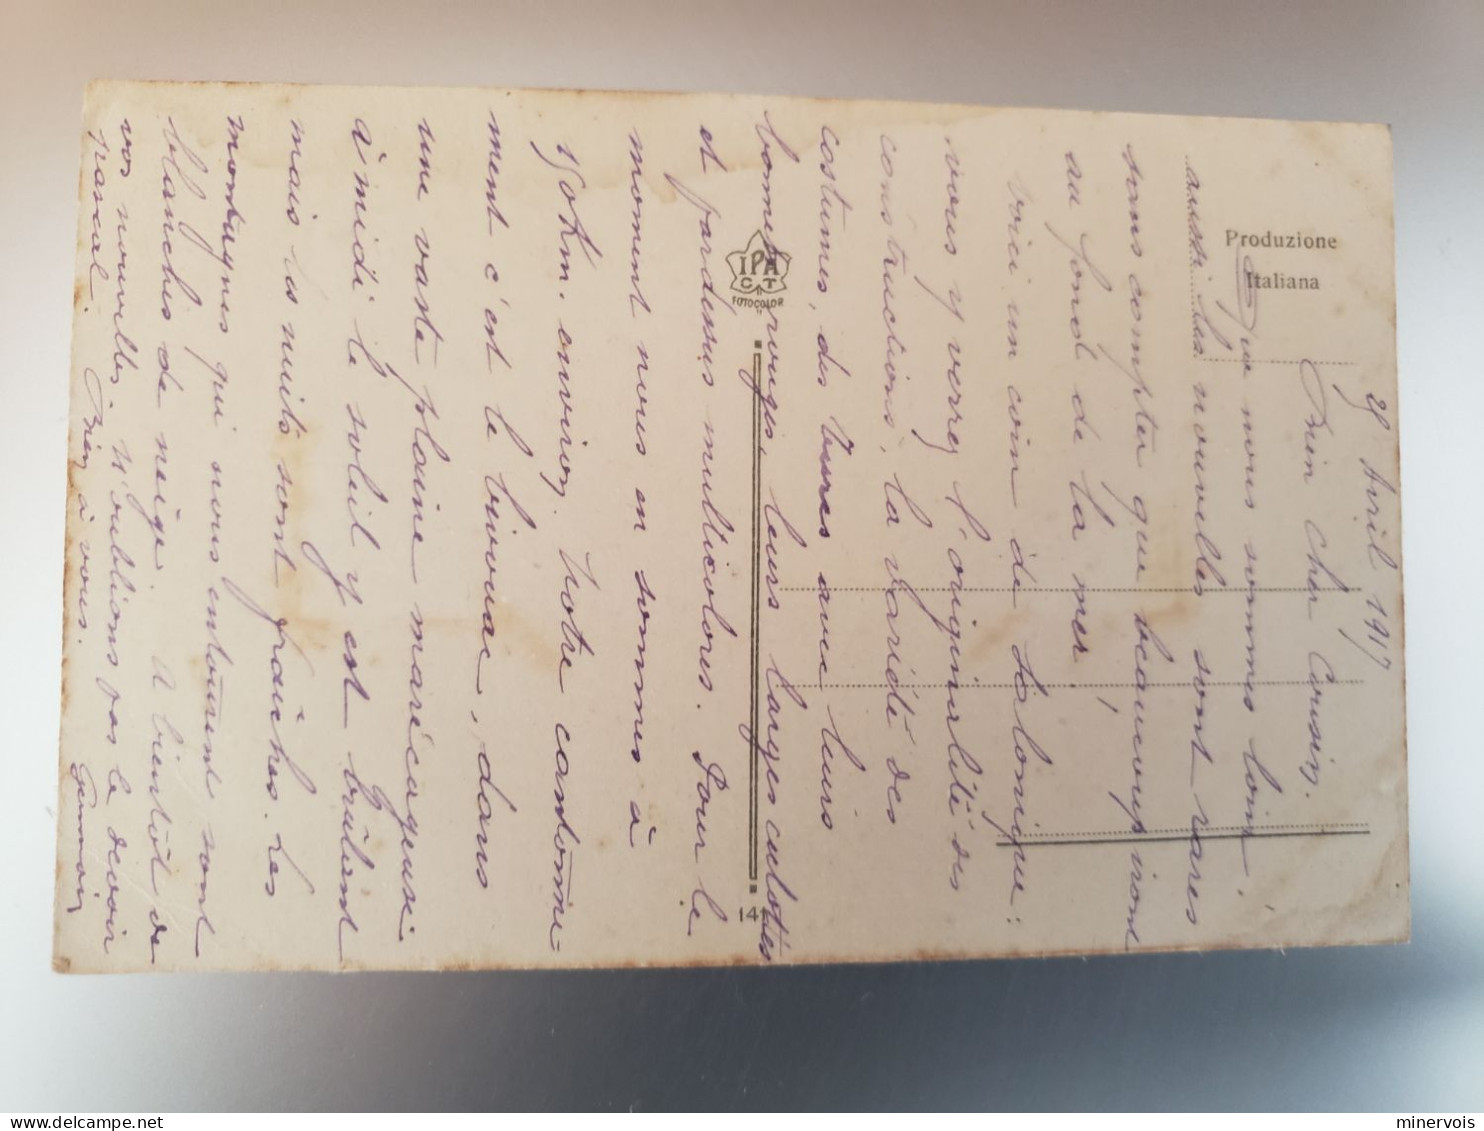 25 Avril 1917
Bien cher Cousin,
Que nous sommes loin!
aussi les nouvelles sont rares
sans compter que beaucoup iront
au fond de la mer.
Voici un coin de Salonique:
vous y verrez l'originalité des
constructions, la variété des
costumes, des turcs avec leurs
bonnets rouges, leurs larges culottes
et pardessus multicolores. Pour le
moment nous en sommes à
150 Km. environ. Notre cantonne-
ment c'est le bivouac, dans
une vaste plaine marécageuse.
à midi le soleil y est brûlant
mais les nuits sont fraîches. Les
montagnes qui nous entourent sont
blanches de neige. A bientôt de
vos nouvelles. N'oublions pas le devoir
pascal. Bien à vous.
Produzione
Italiana
IPA
CT
FOTOCOLOR
minervois